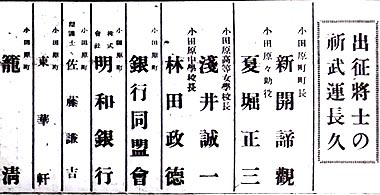 出征將士の
祈武運長久
小田原町町長
新開諦觀
小田原町々助役
夏堀正三
小田原高等女學校長
淺井誠一
小田原中學校長
林田政德
銀行同盟會
小田原町
株式會社
明和銀行
小田原町
辯護士
佐藤謙吉
小田原町
東華軒
小田原町
籠淸